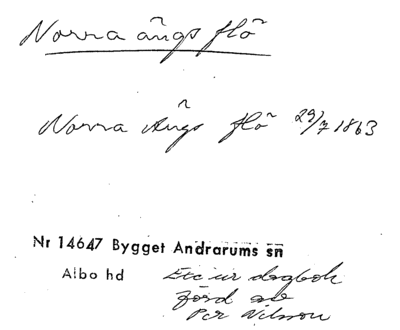 Norra ängs flô
Norra Ängs flô 29/7 1863
Nr 14647 Bygget Andrarums sn
Albo hd
Exc ur dagbok
förd av
Per Nilsson